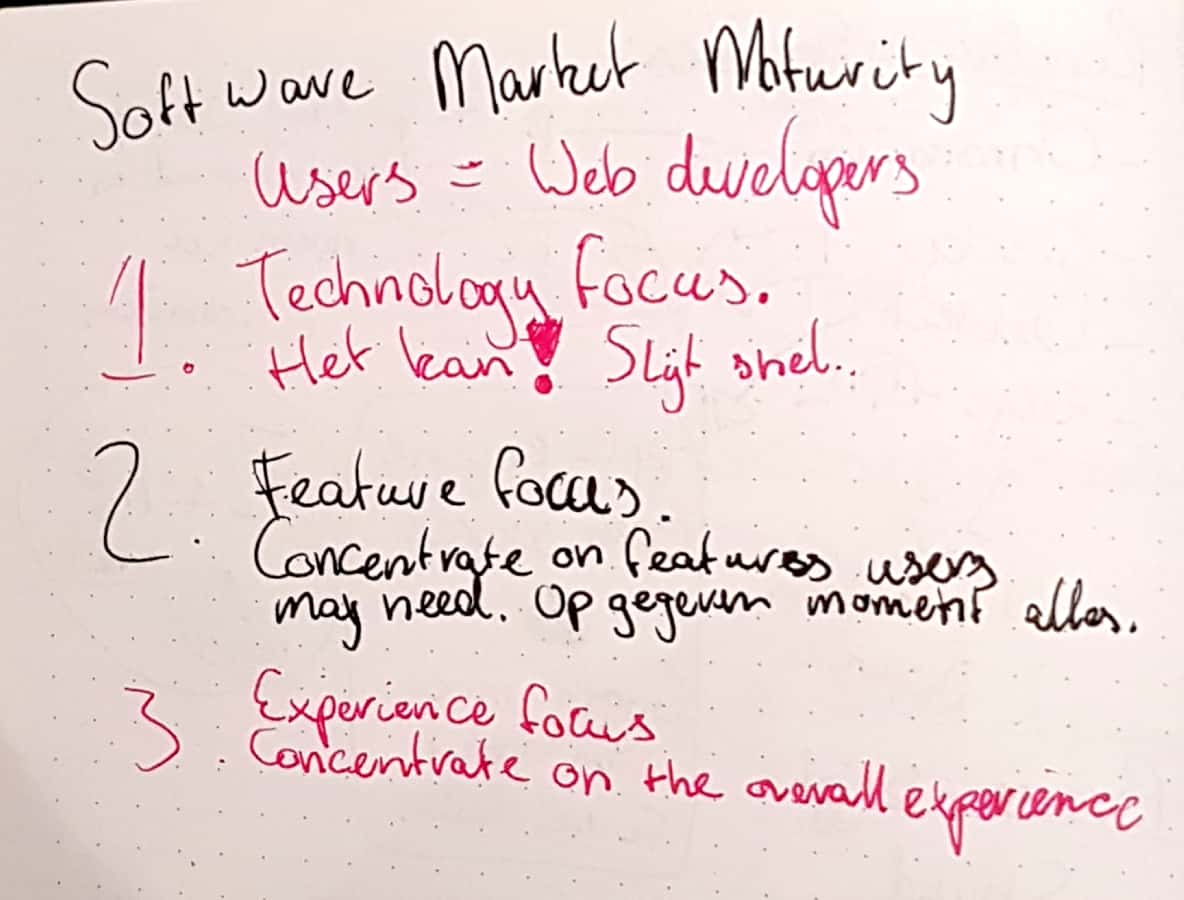 Software Market Maturity
Users = Web developers
1. Technology focus.
Het kan! Slijt snel..
2. Feature focus.
Concentrate on features users
may need. Op gegeven moment alles.
3. Experience focus
Concentrate on the overall experience